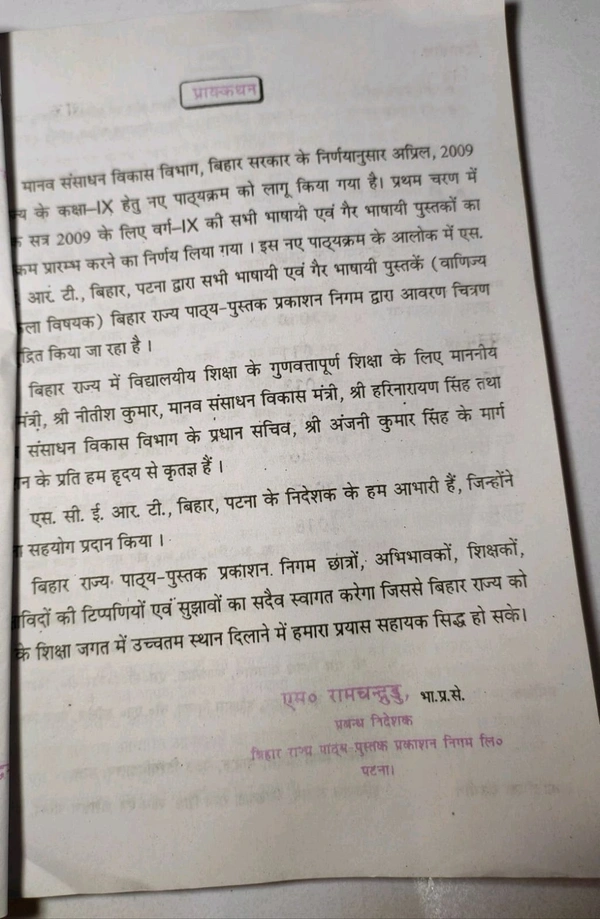 प्राक्कथन
मानव संसाधन विकास विभाग, बिहार सरकार के निर्णयानुसार अप्रिल, 2009
के कक्षा–IX हेतु नए पाठ्यक्रम को लागू किया गया है। प्रथम चरण में
सत्र 2009 के लिए वर्ग–IX की सभी भाषायी एवं गैर भाषायी पुस्तकों का
प्रारम्भ करने का निर्णय लिया गया । इस नए पाठ्यक्रम के आलोक में एस.
आर. टी., बिहार, पटना द्वारा सभी भाषायी एवं गैर भाषायी पुस्तकें (वाणिज्य
विषयक) बिहार राज्य पाठ्य-पुस्तक प्रकाशन निगम द्वारा आवरण चित्रण
किया जा रहा है ।
बिहार राज्य में विद्यालयीय शिक्षा के गुणवत्तापूर्ण शिक्षा के लिए माननीय
मंत्री, श्री नीतीश कुमार, मानव संसाधन विकास मंत्री, श्री हरिनारायण सिंह तथा
संसाधन विकास विभाग के प्रधान सचिव, श्री अंजनी कुमार सिंह के मार्ग
के प्रति हम हृदय से कृतज्ञ हैं ।
एस. सी. ई. आर. टी., बिहार, पटना के निदेशक के हम आभारी हैं, जिन्होंने
सहयोग प्रदान किया ।
बिहार राज्य पाठ्य-पुस्तक प्रकाशन. निगम छात्रों, अभिभावकों, शिक्षकों,
की टिप्पणियों एवं सुझावों का सदैव स्वागत करेगा जिससे बिहार राज्य को
के शिक्षा जगत में उच्चतम स्थान दिलाने में हमारा प्रयास सहायक सिद्ध हो सके।
एम० रामचन्द्रुडु, भा.प्र.से.
प्रबन्ध निदेशक
बिहार राज्य पाठ्य पुस्तक प्रकाशन निगम लि०
पटना।